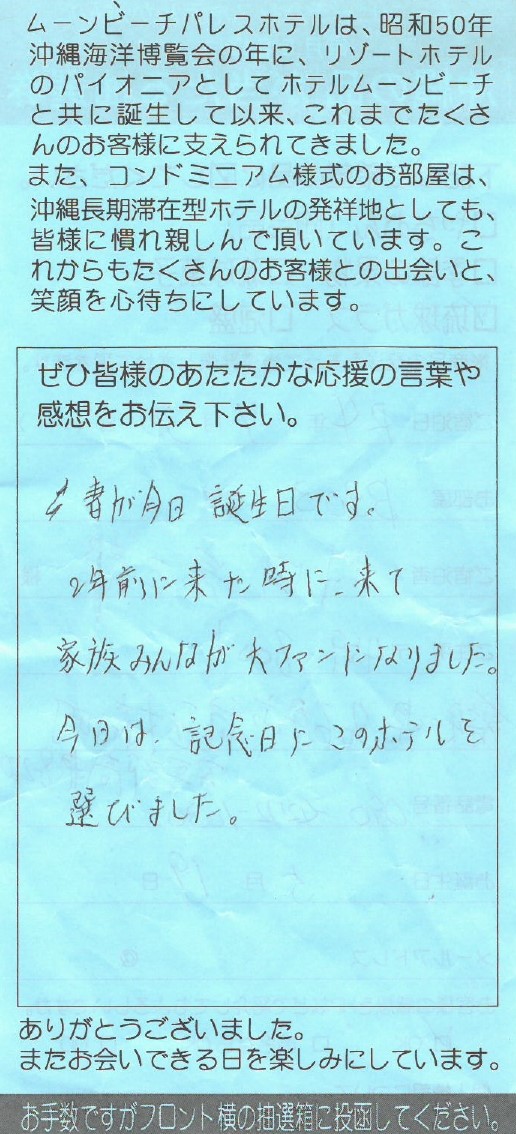 ムーンビーチパレスホテルは、昭和50年
沖縄海洋博覧会の年に、リゾートホテル
のパイオニアとしてホテルムーンビーチ
と共に誕生して以来、これまでたくさ
んのお客様に支えられてきました。
また、コンドミニアム様式のお部屋は、
沖縄長期滞在型ホテルの発祥地としても、
皆様に慣れ親しんで頂いています。こ
れからもたくさんのお客様との出会いと、
笑顔を心待ちにしています。
ぜひ皆様のあたたかな応援の言葉や
感想をお伝え下さい。
妻が今日誕生日です。
2年前に来た時に、来て
家族みんなが大ファンになりました。
今日は、記念日にこのホテルを
選びました。
ありがとうございました。
またお会いできる日を楽しみにしています。
お手数ですがフロント横の抽選箱に投函してください。